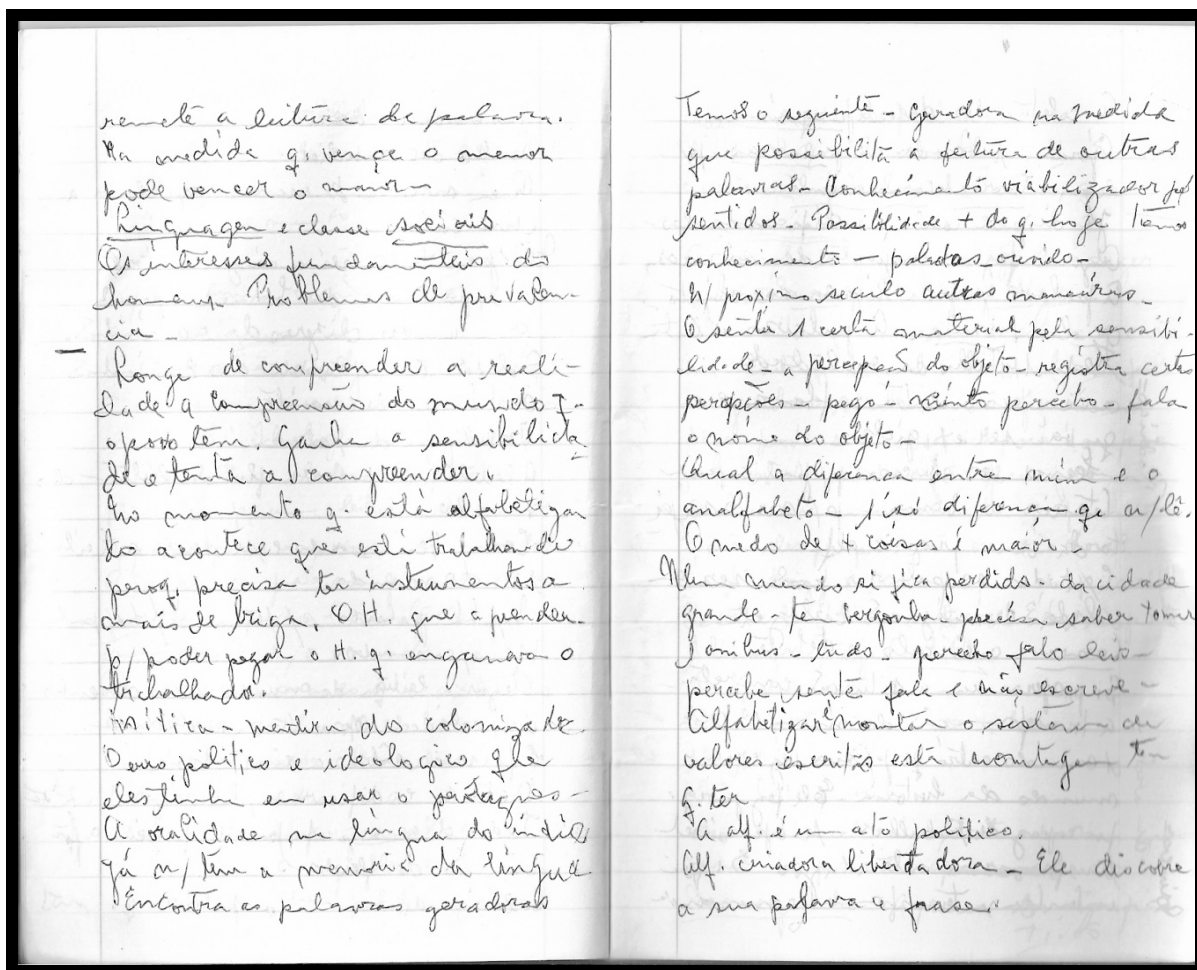 remete a leitura da palavra.
Na medida q. vença o menor
pode vencer o maior -
Linguagem e classe sociais
Os interesses fundamentais do
homem. Problemas de prevalen-
cia -
Longe de compreender a reali-
dade a compreensão do mundo q.
o povo tem. Ganha a sensibilida
de e tenta a compreender.
No momento q. está alfabetizan
do acontece que está trabalhando
porq. precisa ter instrumentos a
mais de briga. O H. que aprender
p/ poder pegar o H. q. enganava o
trabalhador.
mítica - mentira do colonizador
O erro politico e ideologico que
eles tinha em usar o portugues -
A oralidade na língua do índio
já n/ tem a memoria da língua
Encontra as palavras geradoras
Temos o seguinte - geradora na medida
que possibilita a feitura de outras
palavras - Conhecimento viabilizador
sentidos - Possibilidade + do q. hoje temos
conhecimento - ouvido -
N/ próximo seculo outras maneiras -
O senti 1 certa material pela sensibi-
lidade - a percepção do objeto - registra certas
percepções - pego - sinto percebo - fala
o nome do objeto -
Qual a diferença entre mim e o
analfabeto - 1 só diferença q. n/ lê.
O medo de + coisas é maior -
Num mundo si fica perdido - da cidade
grande - tem vergonha - precisa saber tomar
1 onibus - tudo - percebo falo leio -
percebe sente fala e não escreve -
Alfabetizar montar o sistema de
valores escritas esta montagem tem
q. ter
A alf. é um ato politico.
Alf. criadora libertadora - Ele discobre
a sua palavra e frase.